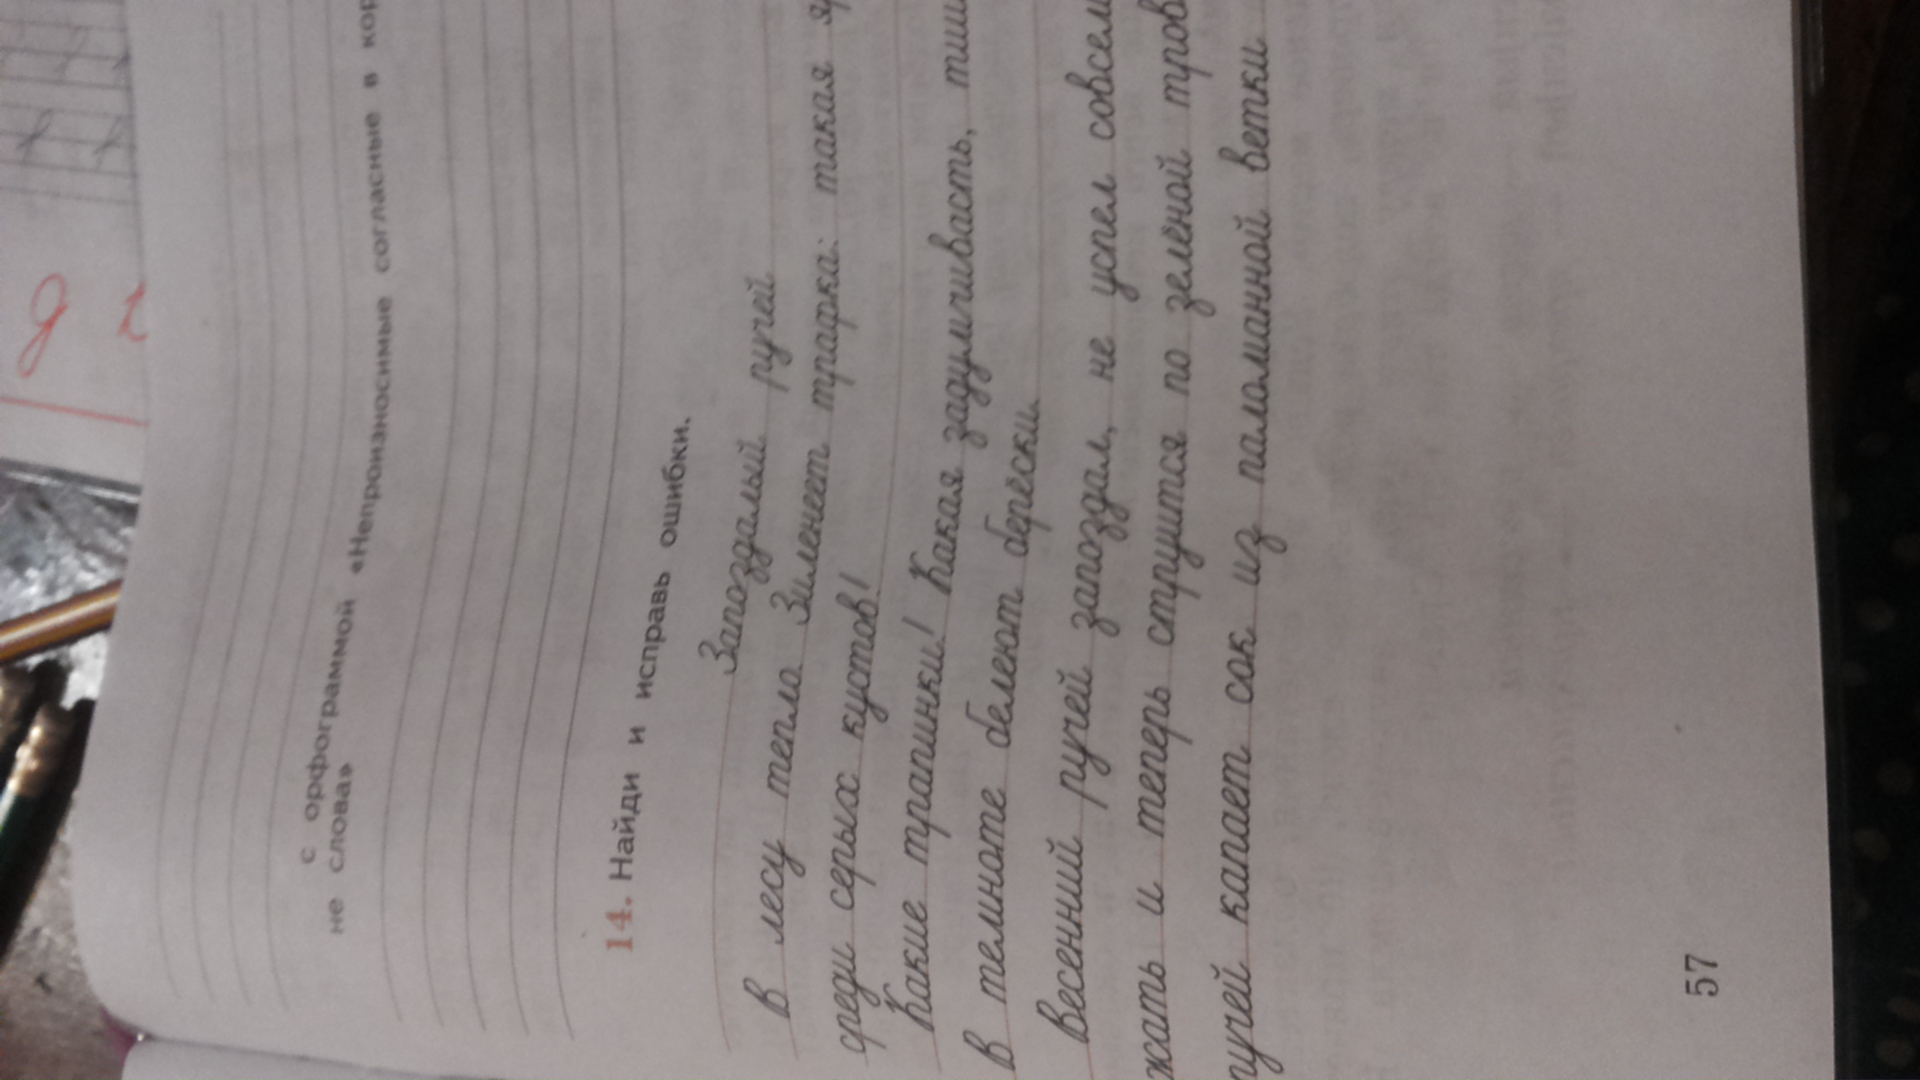 с орфограммой «Непроизносимые согласные в кор
не слова»
14. Найди и исправь ошибки.
Запоздалый ручей
В лесу тепло. Зиленеет трарка: такая я
среди серых кустов!
Какие трапинки! Какая задумчивасть, тиш
В темноте белеют берёски.
Весенний ручей запоздал, не успел совсем
жать и теперь струится по зелёной тров
ручей капает сок из паломанной ветки
57